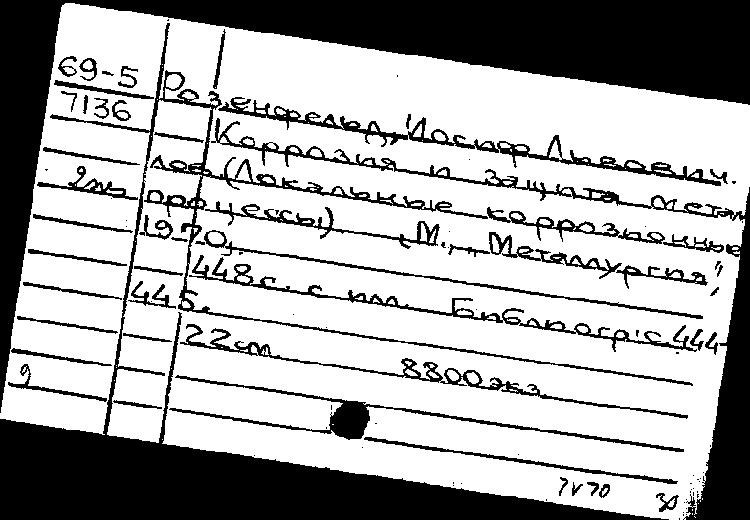 69-5 Розенфельд, Иосиф Львович.
7136 Коррозия и защита метал
лов. (Локальные коррозионные
2 процессы). М., "Металлургия",
1970,
448 с. с илл. Библиогр: с. 444-
445.
22 см. 8800 экз.
9